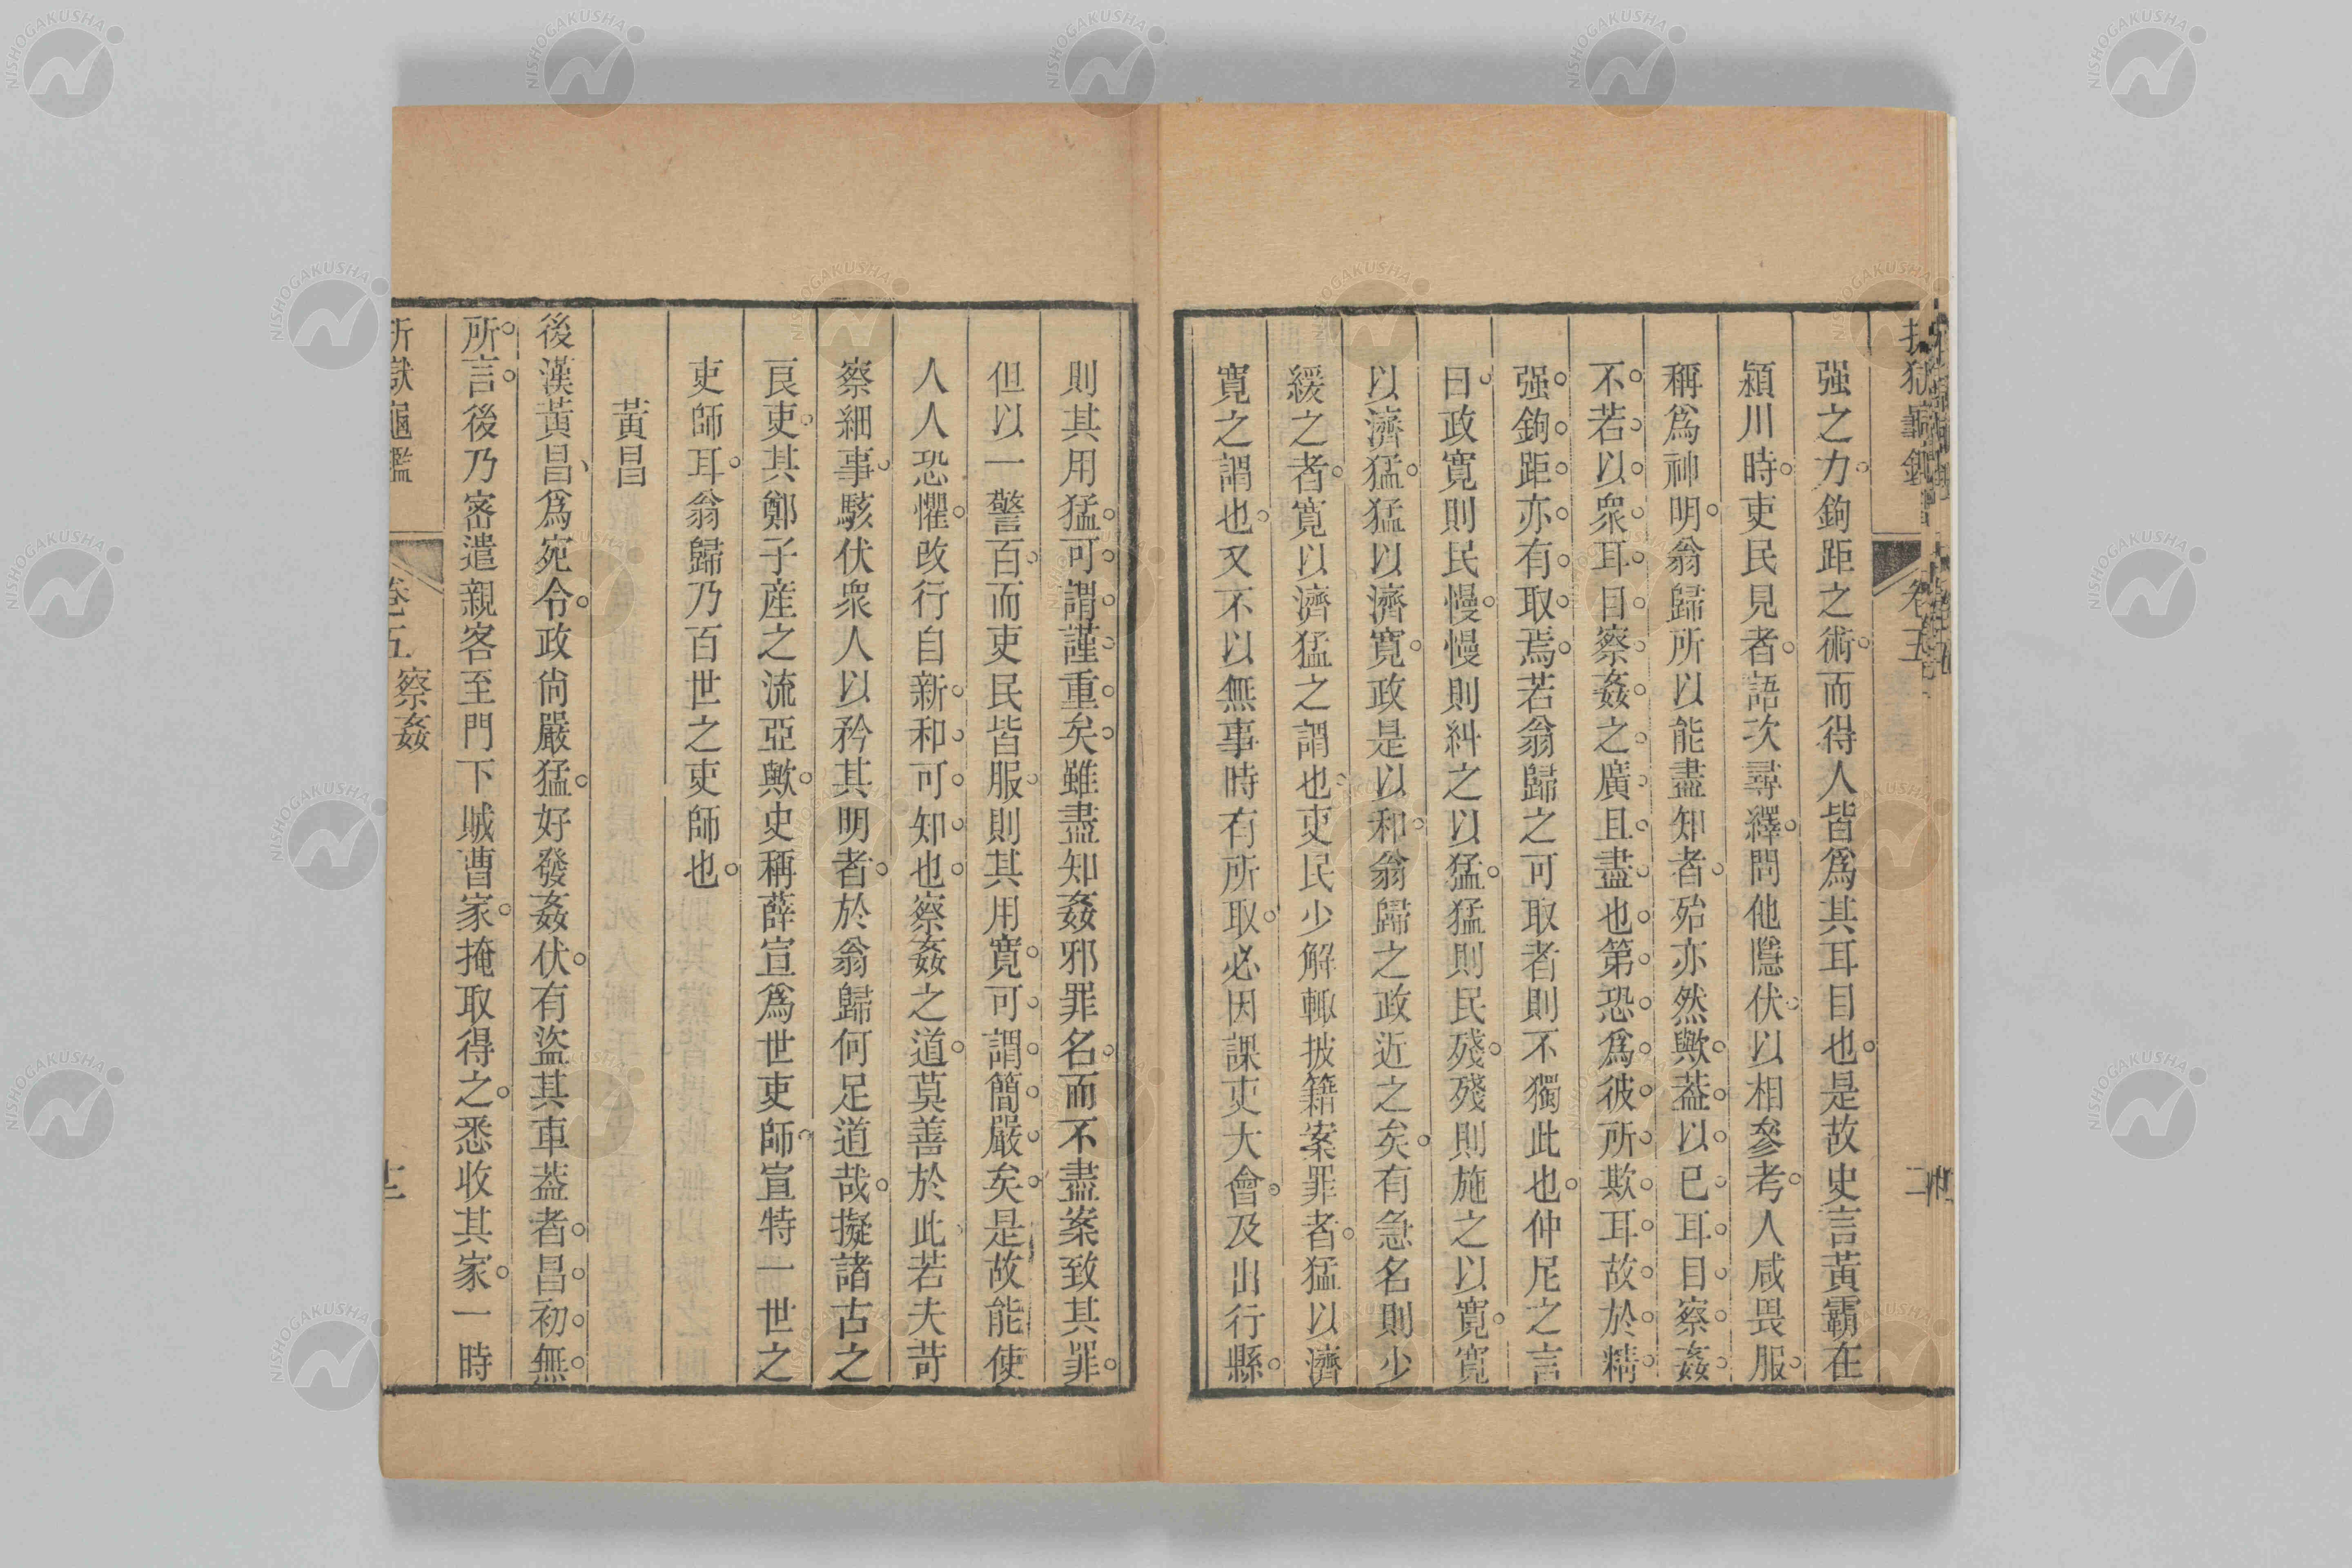 强之力鉤距之術而得人皆爲其耳目也是故史言黃霸在
潁川時吏民見者語次尋繹問他隱伏以相參考人咸畏服
稱爲神明翁歸所以能盡知者殆亦然歟葢以已耳目察姦
不若以衆耳目察姦之廣且盡也第恐爲彼所欺耳故於精
强鉤距亦有取焉若翁歸之可取者則不獨此也仲尼之言
曰政寬則民慢慢則糾之以猛猛則民殘殘則施之以寬寬
以濟猛猛以濟寬政是以和翁歸之政近之矣有急名則少
緩之者寬以濟猛之謂也吏民少解輒披籍案罪者猛以濟
寬之謂也又不以無事時有所取必因課吏大會及出行縣
則其用猛可謂謹重矣雖盡知姦邪罪名而不盡案致其罪
但以一警百而吏民皆服則其用寬可謂簡嚴矣是故能使
人人恐懼改行自新和可知也察姦之道莫善於此若夫苛
察細事駭伏衆人以矜其明者於翁歸何足道哉擬諸古之
良吏其鄭子產之流亞歟史稱薛宣爲世吏師宣特一世之
吏師耳翁歸乃百世之吏師也
黃昌
後漢黃昌爲宛令政尙嚴猛好發姦伏有盜其車葢者昌初無
所言後乃密遣親客至門下賊曹家掩取得之悉收其家一時
折獄龜鑑 卷五 察姦
NISHOGAKUSHA